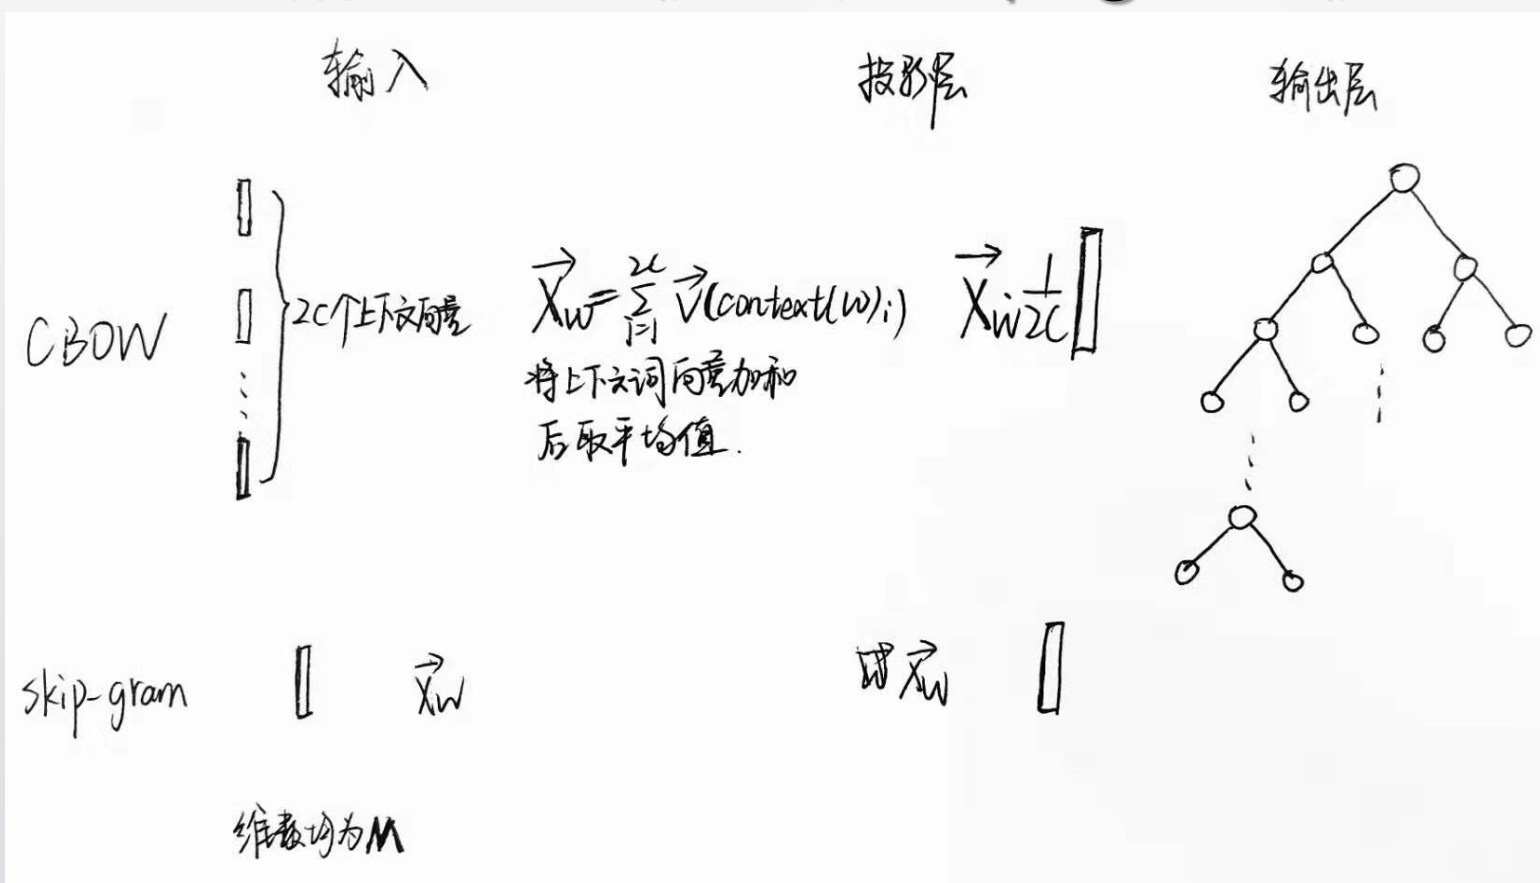 输入 投影层 输出层
CBOW
2C个上下文向量
X⃗w = Σ_{i=1}^{2c} V⃗(context(w)i)
将上下文词向量加和
后取平均值.
X⃗w 1/2C
skip-gram X⃗w X⃗w
维数均为M